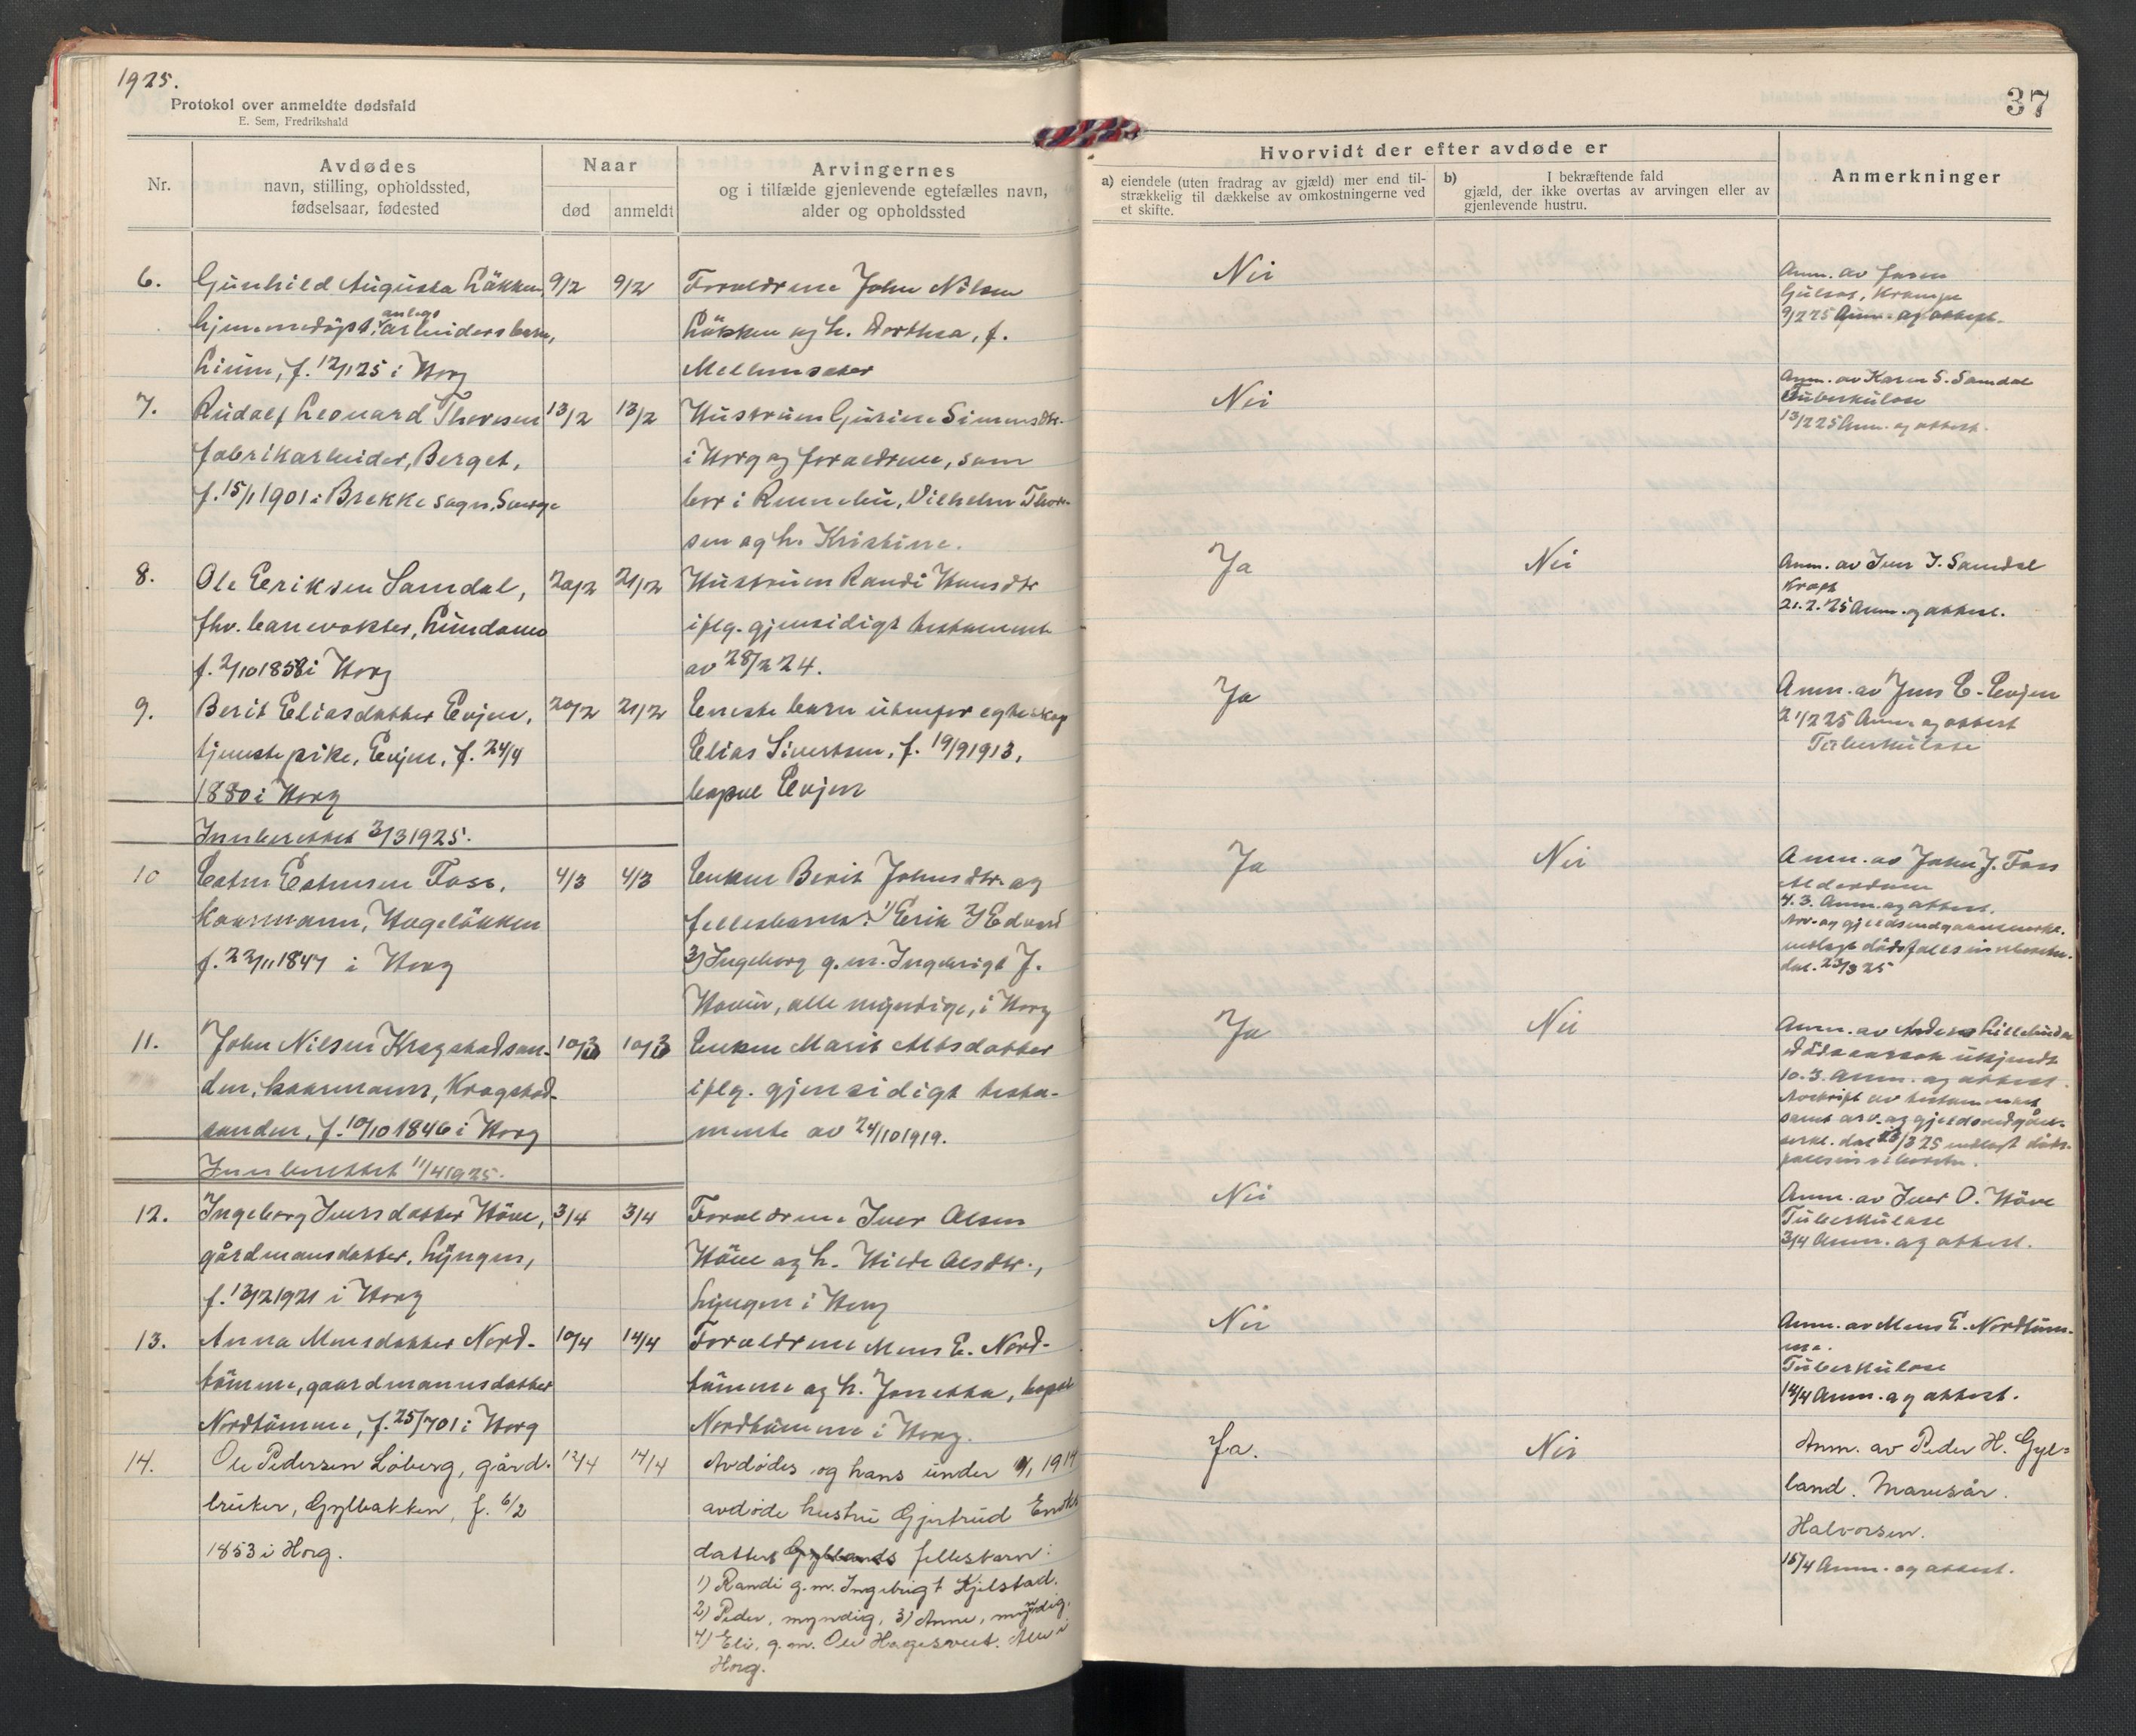 1925.
Protokol over anmeldte dødsfald
E. Sem, Fredrikshald
37
Nr.
Avdødes
navn, stilling, opholdssted,
fødselsaar, fødested
Naar
død
anmeldt
Arvingernes
og i tilfælde gjenlevende egtefælles navn,
alder og opholdssted
Hvorvidt der efter avdøde er
a) eiendele (uten fradrag av gjæld) mer end til-
strækkelig til dækkelse av omkostningerne ved
et skifte.
b) I bekræftende fald
gjæld, der ikke overtas av arvingen eller av
gjenlevende hustru.
Anmerkninger
6. Gunhild Augusta Løkken 9/2 9/2 Forældrene John Nilsen Nei Anm. av
hjemmedøpt, anlegsarbeidersbarn, Løkken og h. Dorthea, f.
Lium, f. 12/1 25 i Horg
9/2 25 Anm. og attest.
7. Rudolf Leonard Thoresen 13/2 13/2 Hustruen Gurine Simensdtr. Nei Anm. av Karen S. Samdal
Tuberkulose
fabrikarbeider, Berget, i Horg og forældrene, som 13/2 25 Anm. og attest.
f. 15/1 1901 i Brekke sogn, bor i Rennebu, Vilhelm Thore-
sen og h. Kristine.
8. Ole Eriksen Samdal, 20/2 21/2 Hustruen Randi Hansdtr Ja Nei Anm. av Iver I. Samdal
Kræft
fhv. banevokter, Lundamo iflg. gjensidigt testamente 21.2.25 Anm. og attest.
f. 2/10 1858 i Horg av 28/2 24.
9. Berit Eliasdatter Evjen, 20/2 21/2 Eneste barn utenfor egteskap Ja Anm. av Jens E. Evjen
tjenestepike, Evjen, f. 24/4 Elias Sivertsen, f. 19/9 1913, 21/2 25 Anm. og attest
1880 i Horg bopæl Evjen Tuberkulose
Innberettet 3/3 1925.
10 Esten Estensen Foss, 4/3 4/3 Enken Berit Johnsdtr. og Ja Nei Anm. av John J. Foss
Alderdom
kaarmann, Hageløkken fellesbarn: 1) Erik 2) Edvard 4.3. Anm. og attest.
f. 22/11 1847 i Horg 3) Ingeborg g.m. Ingebrigt J.
alle myndige, i Horg
dat. 23/3 25
11. John Nilsen Kregstadsan- 10/3 10/3 Enken Marit Atlsdatter Ja Nei Anm. av Anders
Dødsaarsak utkjendt
den, kaarmann, Kragstad- iflg. gjensidigt testa- 10.3. Anm. og attest.
sanden, f. 10/10 1846 i Horg mente av 24/10 1919. Avskrift av testamentet
samt arv. og gjeldsvedgåel-
Innberettet 11/4 1925.
12. Ingeborg Iversdatter Høve, 3/4 3/4 Forældrene Iver Olsen Nei Anm. av Iver O. Høve
Tuberkulose
gårdmansdatter, Lyngen, Høve og h. Hilde Olsdtr., 3/4 Anm. og attest.
f. 13/2 1921 i Horg Lyngen i Horg
13. Anna Monsdatter Nord- 10/4 14/4 Forældrene Mons E. Nord- Nei Anm. av Mons E. Nordtøm-
me.
tømme, gaardmannsdatter tømme og h. Jonetta, bopæl Tuberkulose
Nordtømme, f. 25/7 01 i Horg Nordtømme i Horg. 14/4 Anm. og attest.
14. Ole Pedersen Løberg, gård- 12/4 14/4 Avdødes og hans under 9/1 1914 Ja. Nei Anm. av Peder H. Gyl=
bruker, Gyllbakken, f. 6/2 avdøde hustru Gjertrud land.
1853 i Horg. datter Gyllands fellesbarn: Halvorsen.
1) Randi g.m. Ingebrigt Kjelstad. 15/4 Anm. og attest.
2) Peder, myndig, 3) Anne, myndig.
4) Eli, g.m. Ole Alle i
Horg.